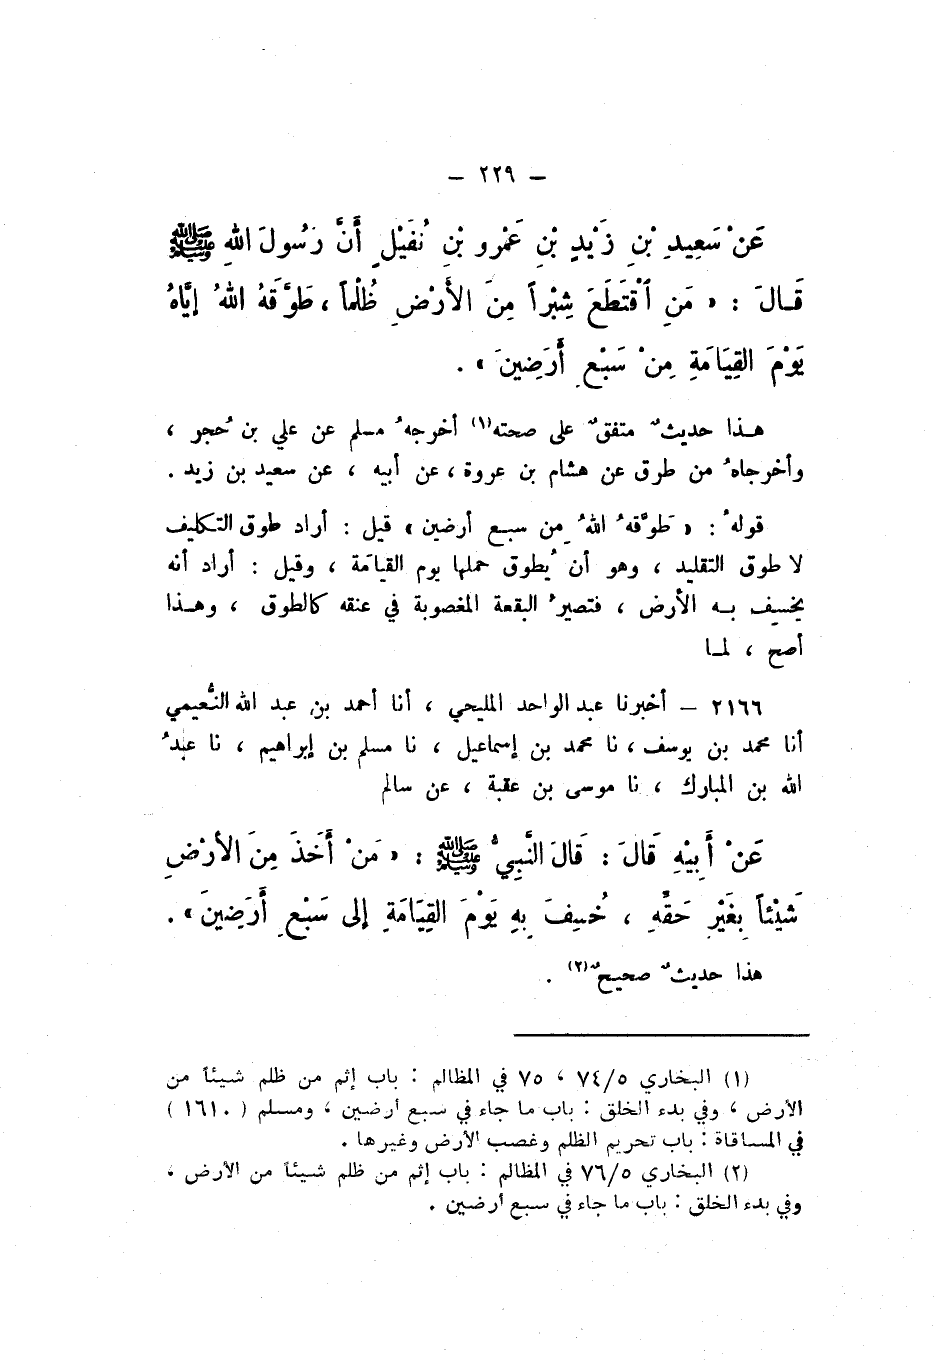 - ٢٢٩ -
عَنْ سَعِيدِ بْنِ زَيْدِ بْنِ عَمْرِو بْنِ نُفَيْلٍ أَنَّ رَسُولَ اللهِ ﷺ
قَالَ : « مَنِ ٱقْتَطَعَ شِبْراً مِنَ الأَرْضِ ظُلْماً ، طَوَّقَهُ اللهُ إيَّاهُ
يَوْمَ القِيَامَةِ مِنْ سَبْعِ أَرَضِينَ » .
هذا حديثٌ متفقٌ على صحته(١) أخرجهُ مسلم عن علي بن حُجر ،
وأخرجاهُ من طرق عن هشام بن عروة ، عن أبيه ، عن سعيد بن زيد .
قولهُ : « طَوَّقهُ اللهُ مِن سبع أرضين » قيل : أراد طوق التكليف
لا طوق التقليد ، وهو أن يُطوق حملها يوم القيامَة ، وقيل : أراد أنه
يخسِف به الأرض ، فتصيرُ البقعة المغصوبة في عنقه كالطوق ، وهذا
أصح ، لما
٢١٦٦ – أخبرنا عبد الواحد المليحي ، أنا أحمد بن عبد الله النُّعيمي
أنا محمد بن يوسف ، نا محمد بن إسماعيل ، نا مسلم بن إبراهيم ، نا عبدُ
الله بن المبارك ، نا موسى بن عقبة ، عن سالم
عَنْ أَبِيْهِ قَالَ : قَالَ النَّبِيُّ ﷺ : « مَنْ أَخَذَ مِنَ الأَرْضِ
شَيْئاً بِغَيْرِ حَقِّهِ ، خُسِفَ بِهِ يَوْمَ القِيَامَةِ إلى سَبْعِ أَرَضِينَ » .
هذا حديثٌ صحيحٌ(٢) .
(١) البخاري ٧٤/٥ ، ٧٥ في المظالم : باب إثم من ظلم شيئاً من
الأرض ، وفي بدء الخلق : باب ما جاء في سبع أرضين ، ومسلم ( ١٦١٠ )
في المساقاة : باب تحريم الظلم وغصب الأرض وغيرها .
(٢) البخاري ٧٦/٥ في المظالم : باب إثم من ظلم شيئاً من الأرض ،
وفي بدء الخلق : باب ما جاء في سبع أرضين .